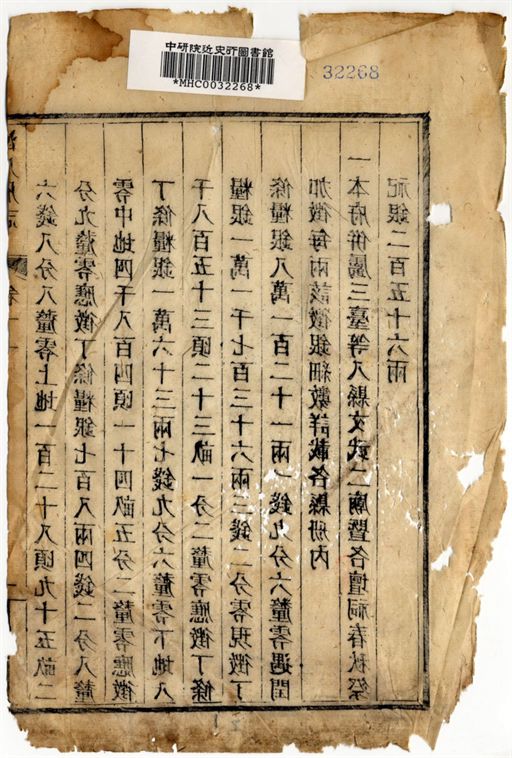 中研院近史所圖書館
*MHC0032268*
32268
六錢八分八釐零上地一百二十八頃九十五畝二
分九釐零應徵丁條糧銀七百八兩四錢二分八釐
零中地四千八百四頃一十四畝五分二釐零應徵
丁條糧銀一萬六十三兩七錢九分六釐零下地八
千八百五十三頃二十三畝一分二釐零應徵丁條
糧銀一萬一千七百三十六兩二錢二分零現徵丁
條糧銀八萬一百二十一兩一錢九分六釐零遇閏
加徵每兩該徵銀細數詳載各縣冊內
一本府併屬三臺等八縣文武二廟暨各壇祠春秋祭
祀銀二百五十六兩